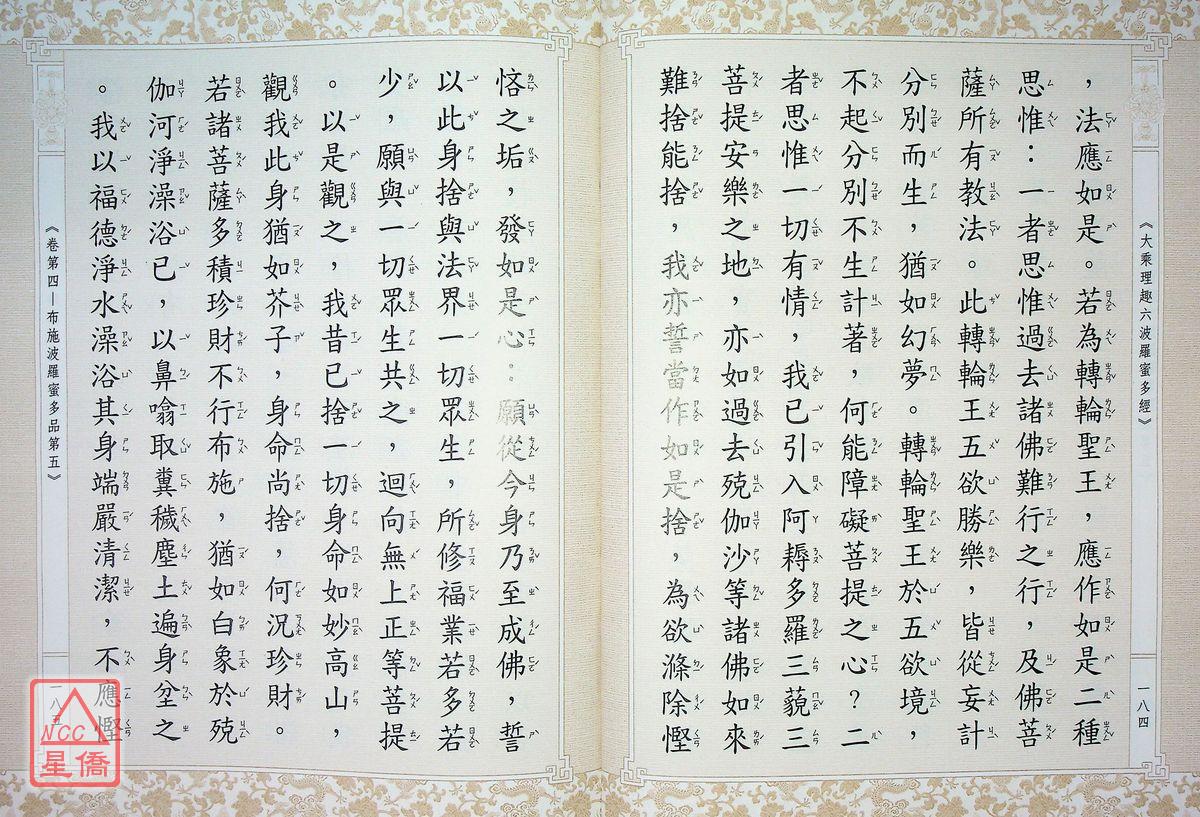 《大乘理趣六波羅蜜多經》
一八四
，法應如是。若為轉輪聖王，應作如是二種
思惟：一者思惟過去諸佛難行之行，及佛菩
薩所有教法。此轉輪王五欲勝樂，皆從妄計
分別而生，猶如幻夢。轉輪聖王於五欲境，
不起分別不生計著，何能障礙菩提之心？二
者思惟一切有情，我已引入阿耨多羅三藐三
菩提安樂之地，亦如過去殑伽沙等諸佛如來
難捨能捨，我亦誓當作如是捨，為欲滌除慳
悋之垢，發如是心：願從今身乃至成佛，誓
以此身捨與法界一切眾生，所修福業若多若
少，願與一切眾生共之，迴向無上正等菩提
。以是觀之，我昔已捨一切身命如妙高山，
觀我此身猶如芥子，身命尚捨，何況珍財。
若諸菩薩多積珍財不行布施，猶如白象於殑
伽河淨澡浴已，以鼻噏取糞穢塵土遍身坌之
。我以福德淨水澡浴其身端嚴清潔，不應慳
《卷第四－布施波羅蜜多品第五》
一八五
NCC
星僑